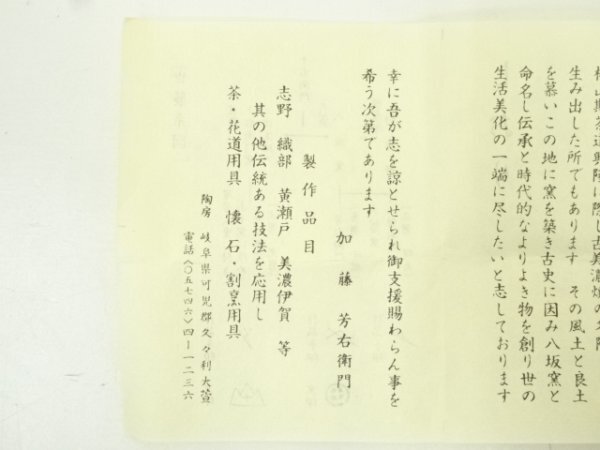 生み出した所でもあります その風土と良土
を慕いこの地に窯を築き古史に因み八坂窯と
命名し伝承と時代的なよりよき物を創り世の
生活美化の一端に尽したいと志しております
幸に吾が志を諒とせられ御支援賜わらん事を
希う次第であります
加藤芳右衛門
製作品目
志野 織部 黄瀬戸 美濃伊賀 等
其の他伝統ある技法を応用し
茶・花道用具 懐石・割烹用具
陶房 岐阜県可児郡久々利大萱
電話(〇五七四六)四―一二三六